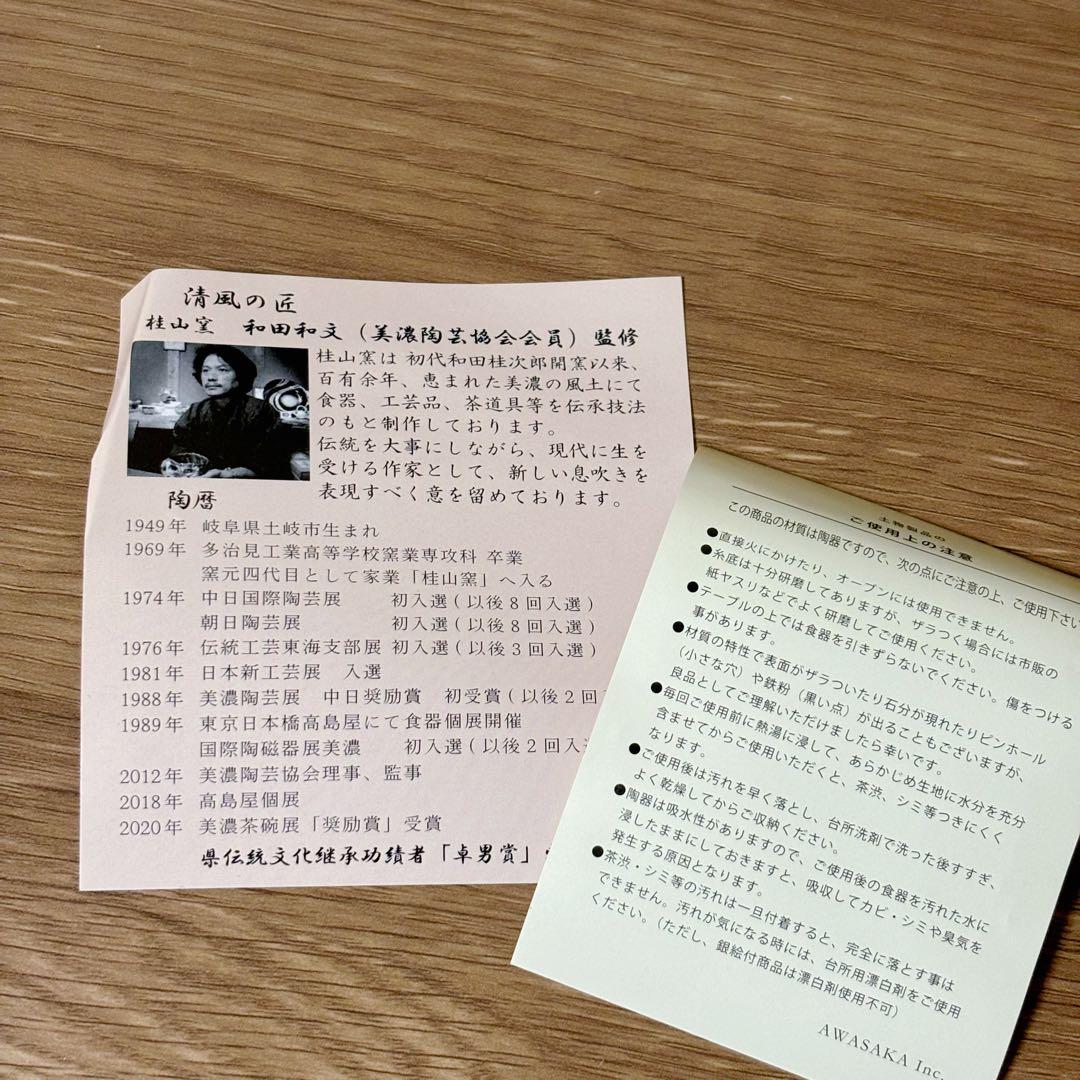 清風の匠
桂山窯 和田和文（美濃陶芸協会会員）監修
桂山窯は 初代和田桂次郎開窯以来、
百有余年、恵まれた美濃の風土にて
食器、工芸品、茶道具等を伝承技法
のもと制作しております。
伝統を大事にしながら、現代に生を
受ける作家として、新しい息吹きを
表現すべく意を留めております。
陶暦
1949年 岐阜県土岐市生まれ
1969年 多治見工業高等学校窯業専攻科 卒業
窯元四代目として家業「桂山窯」へ入る
1974年 中日国際陶芸展 初入選(以後8回入選)
朝日陶芸展 初入選(以後8回入選)
1976年 伝統工芸東海支部展 初入選(以後3回入選)
1981年 日本新工芸展 入選
1988年 美濃陶芸展 中日奨励賞 初受賞(以後2回
1989年 東京日本橋高島屋にて食器個展開催
国際陶磁器展美濃 初入選(以後2回入
2012年 美濃陶芸協会理事、監事
2018年 高島屋個展
2020年 美濃茶碗展「奨励賞」受賞
県伝統文化継承功績者「卓男賞」
土物製品の
ご使用上の注意
この商品の材質は陶器ですので、次の点にご注意の上、ご使用下さい
●直接火にかけたり、オーブンには使用できません。
●糸底は十分研磨してありますが、ザラつく場合には市販の
紙ヤスリなどでよく研磨してご使用ください。
●テーブルの上では食器を引きずらないでください。傷をつける
事があります。
●材質の特性で表面がザラついたり石分が現れたりピンホール
（小さな穴）や鉄粉（黒い点）が出ることもございますが、
良品としてご理解いただけましたら幸いです。
●毎回ご使用前に熱湯に浸して、あらかじめ生地に水分を充分
含ませてからご使用いただくと、茶渋、シミ等つきにくく
なります。
●ご使用後は汚れを早く落とし、台所洗剤で洗った後すすぎ、
よく乾燥してからご収納ください。
●陶器は吸水性がありますので、ご使用後の食器を汚れた水に
浸したままにしておきますと、吸収してカビ・シミや臭気を
発生する原因となります。
●茶渋・シミ等の汚れは一旦付着すると、完全に落とす事は
できません。汚れが気になる時には、台所用漂白剤をご使用
ください。（ただし、銀絵付商品は漂白剤使用不可）
AWASAKA Inc.